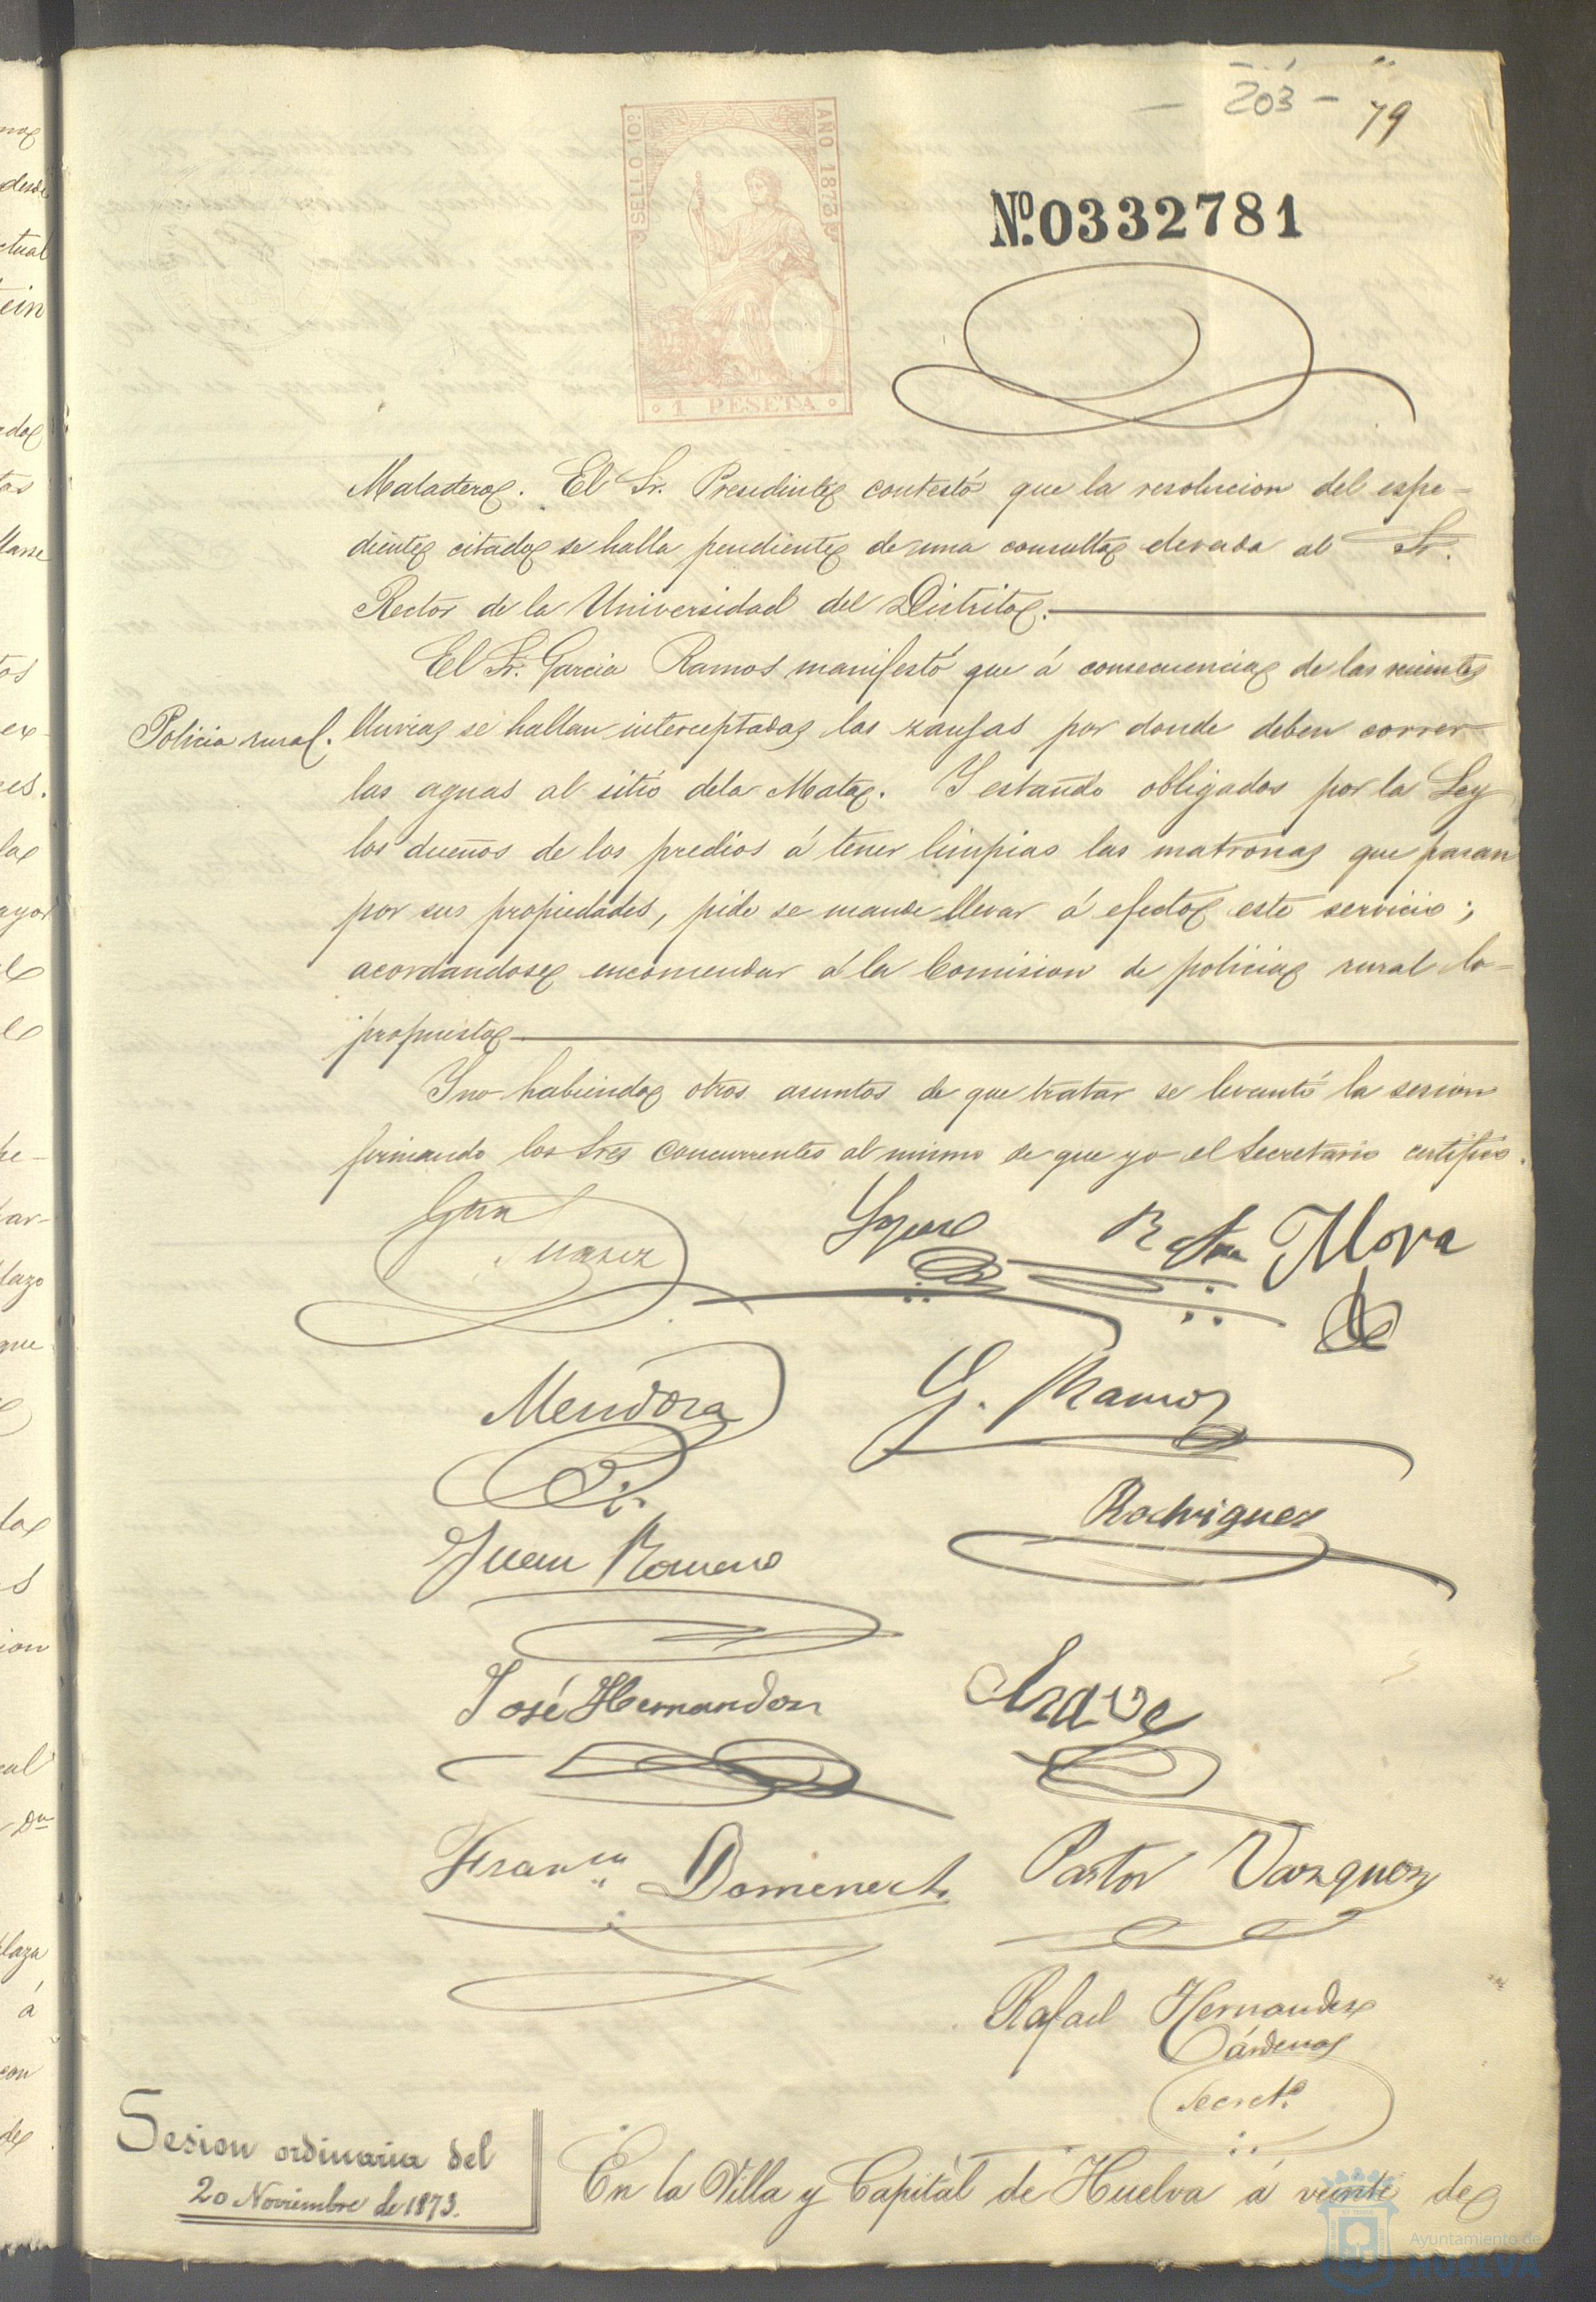 - 203 -
79
SELLO 10º
AÑO 1873
1 PESETA
Nº. 0332781
Matadero. El Sr. Presidente contestó que la resolucion del espe-
diente citado se halla pendiente de una consulta elevada al Sr.
Rector de la Universidad del Distrito.
El Sr. Garcia Ramos manifestó que á consecuencia de las recientes
Policia rural.
lluvias se hallan interceptadas las zanjas por donde deben correr
las aguas al sitio dela Mata. Y estando obligados por la Ley
los dueños de los predios á tener limpias las matronas que pasan
por sus propiedades, pide se mande llevar á efecto este servicio;
acordandose encomendar á la Comision de policia rural lo
propuesto
Y no habiendo otros asuntos de que tratar se levantó la sesion
firmando los Sres concurrentes al mismo de que yo el Secretario certifico.
Mora
Mendoza
G. Ramos
Rodriguez
Juan Romero
José Hernandez
Franco Domenech
Pastor Vazquez
Rafael Hernandez
Cárdenas
Secretº
Sesion ordinaria del
20 Noviembre de 1873.
En la Villa y Capital de Huelva á veinte de
Ayuntamiento de
HUELVA